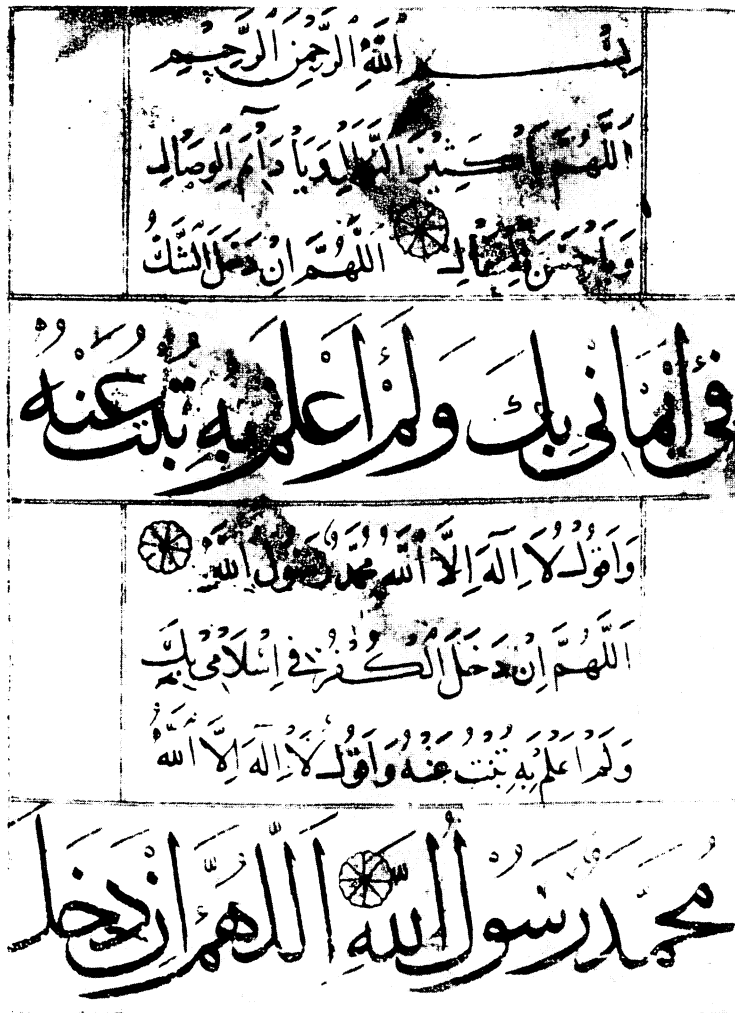 بِسْمِ اللَّهِ الرَّحْمٰنِ الرَّحِيمِ
اَللّٰهُمَّ يَا كَثِيرَ النَّوَالِ وَيَا دَآئِمَ الْوِصَالِ
وَيَا حُسْنَ الْفِعَالِ اَللّٰهُمَّ اِنْ دَخَلَ الشَّكُّ
فِي اِيْمَانِي بِكَ وَلَمْ اَعْلَمْ بِهِ تُبْتُ عَنْهُ
وَاَقُولُ لَا اِلٰهَ اِلَّا اللّٰهُ مُحَمَّدٌ رَسُولُ اللّٰهِ
اَللّٰهُمَّ اِنْ دَخَلَ الْكُفْرُ فِي اِسْلَامِي بِكَ
وَلَمْ اَعْلَمْ بِهِ تُبْتُ عَنْهُ وَاَقُولُ لَا اِلٰهَ اِلَّا اللّٰهُ
مُحَمَّدٌ رَسُولُ اللّٰهِ اَللّٰهُمَّ اِنْ دَخَلَ